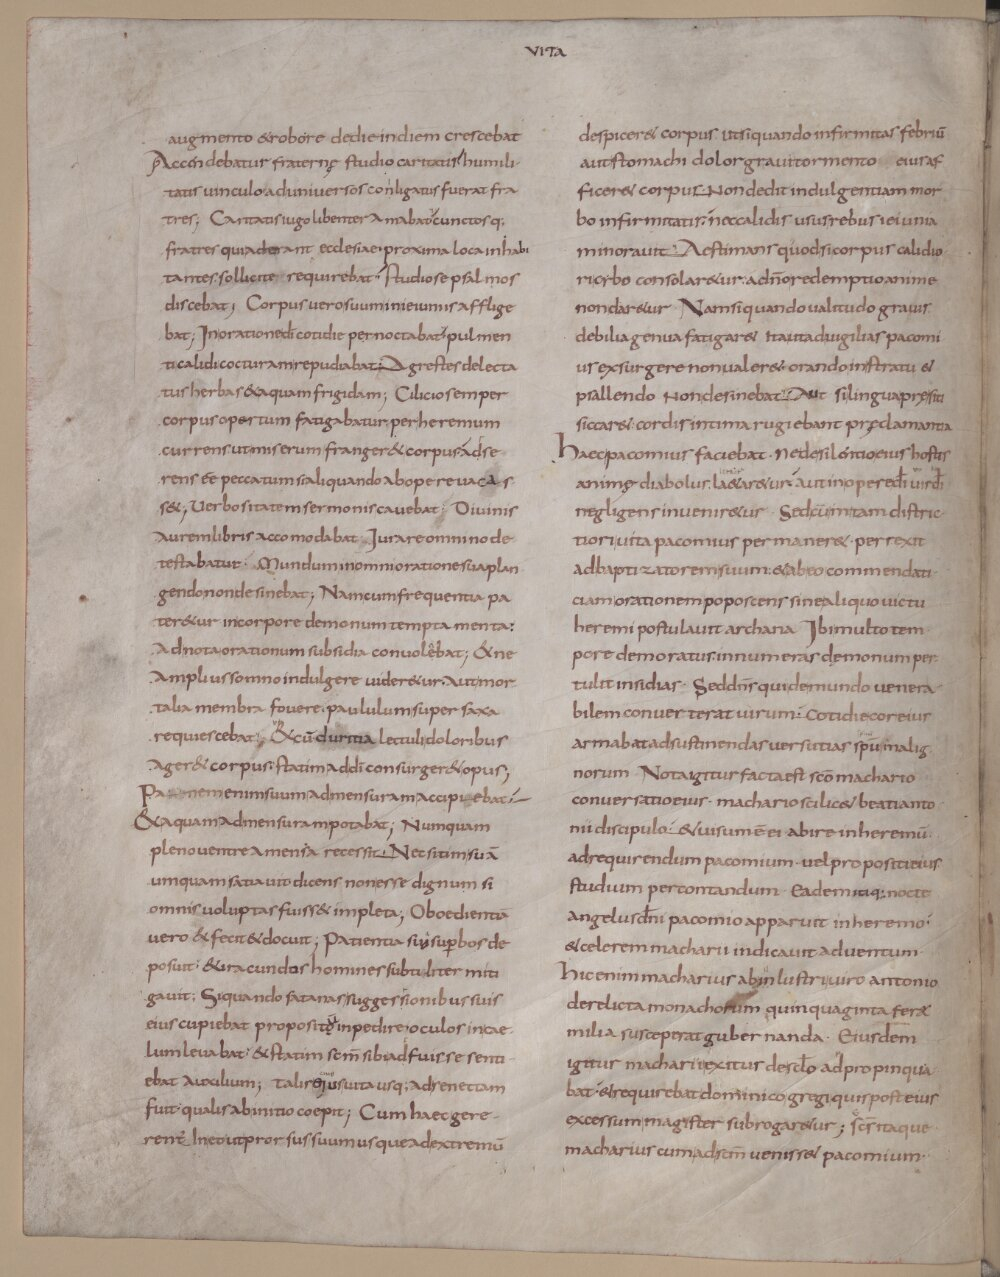 VITA
augmento & robore de die in diem crescebat
Accendebatur fraternę studio caritatis humili
tatis uinculo ad uniuersos conligatus fuerat fra
tres; Caritatis iugo libenter amabat cunctos q;
fratres qui aderant ecclesiae proxima loca inhabi
tantes sollicite requirebat Studiose psalmos
discebat; Corpus uero suum ieiuniis afflige
bat; In oratione di cotidie pernoctabat pulmen
ti calidi cocturam repudiabat Agrestes delecta
tus herbas & aquam frigidam; Cilicio semper
corpus opertum fatigabatur per heremum
currens ut miserum franger& corpus adse
rens ee peccatum si aliquando ab opere uacas
s&; Uerbositatem sermonis cauebat Diuinis
aurem libris accomodabat Iurare omnino de
testabatur Mundum in omni oratione sua plan
gendo non desinebat; Nam cum frequentia pa
ter&ur in corpore demonum temptamenta:
Ad nota orationum subsidia conuolebat; & ne
amplius somno indulgere uider&ur Aut mor
talia membra fouere paululum super saxa
requiescebat; & cū duritia lectuli doloribus
ager& corpus statim ad di consurger& opus;
Panem enim suum ad mensuram accipiebat
& aquam ad mensuram potabat; Numquam
pleno uentre a mensa recessit Nec sitim suā
umquam satiauit dicens non esse dignum si
omnis uoluptas fuiss& impleta; Oboedientiā
uero & fecit & docuit; Patientia sui superbos de
posuit & iracundos homines subtiliter miti
gauit; Si quando satanas suggessionibus suis
eius cupiebat propositū inpedire oculos in cae
lum leuabat & statim scm sibi adfuisse senti
ebat auxilium; talis eius uita usq; ad senectam
fuit qualis ab initio coepit; Cum haec gere
rent
despicer& corpus ut si quando infirmitas febriū
aut stomachi dolor graui tormento eius af
ficer& corpus Non dedit indulgentiam mor
bo infirmitatis nec calidis usus rebus ieiunia
minorauit Aestimans quod si corpus calidio
ri cibo consolar&ur ad dno redemptio anime
non dar&ur Nam si quando ualitudo grauis
debilia genua fatigar& Ita ut ad uigilias pacomi
us exsurgere non ualer& orando in stratu &
psallendo Non desinebat Aut si lingua prę siti
siccar& cordis intima rugiebant prę clamantia
Haec pacomius faciebat ne de silentio eius hostis
animę diabolus l&ar&ur aut in opere di uir di
negligens inuenir&ur Sed cum tam distric
tiori uita pacomius permaner& perrexit
ad baptizatorem suum & ab eo commendati
ciam orationem poposcens sine aliquo uictu
heremi postulauit archana Ibi multo tem
pore demoratus innumeras demonum per
tulit insidias Sed dns qui de mundo uenera
bilem conuerterat uirum Cotidie cor eius
armabat ad sustinendas uersutias spu malig
norum Nota igitur facta est sco machario
conuersatio eius machario scilic& beati anto
nii discipulo & uisum ē ei abire in heremū
ad requirendum pacomium uel propositi eius
studium percontandum Eadem itaq; nocte
angelus dni pacomio apparuit in heremo
& celerem macharii indicauit aduentum
Hic enim macharius ab inlustri uiro antonio
derelicta monachorum quinquaginta ferae
milia susceperat gubernanda Eiusdem
igitur macharii exitus de sclo adpropinqua
bat & requirebat dominico gregi quis post eius
excessum magister subrogar&ur; Scs itaque
macharius cum ad scm uenisse& pacomium